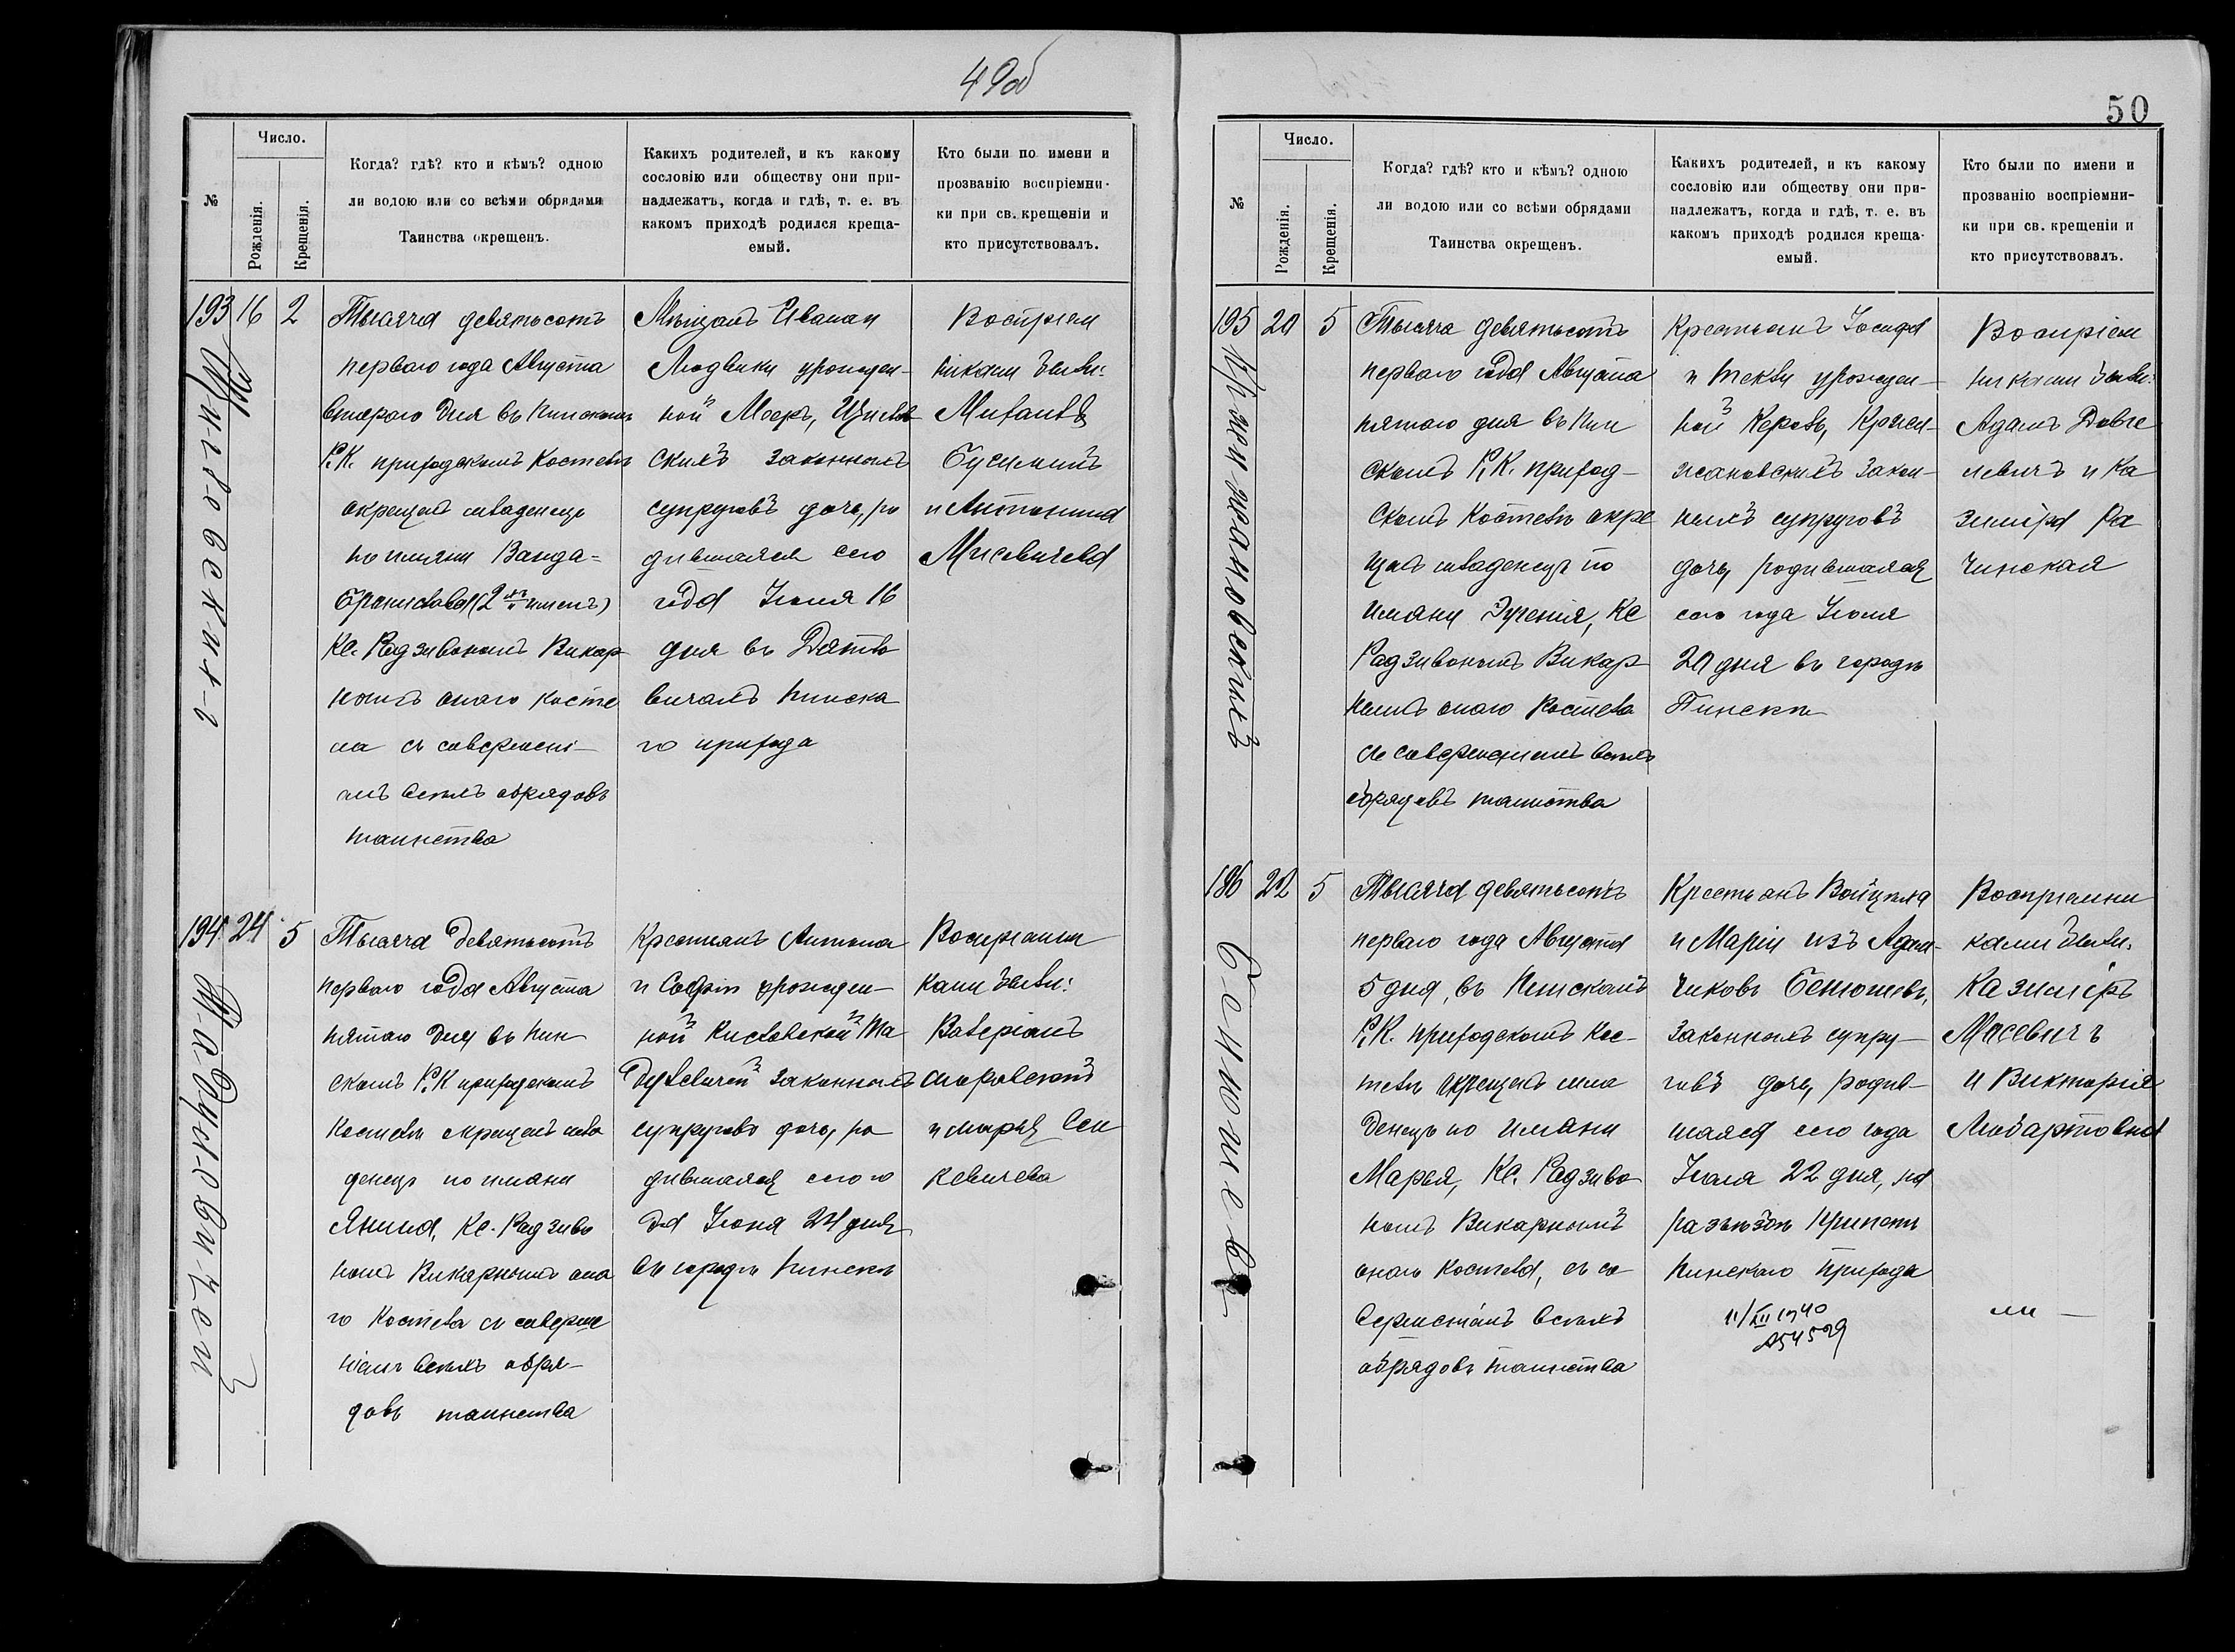 49об
№
Число.
Рожденія.
Крещенія.
Когда? гдѣ? кто и кѣмъ? одною
ли водою или со всѣми обрядами
Таинства окрещенъ.
Какихъ родителей, и къ какому
сословію или обществу они при-
надлежатъ, когда и гдѣ, т. е. въ
какомъ приходѣ родился креща-
емый.
Кто были по имени и
прозванію воспріемни-
ки при св. крещеніи и
кто присутствовалъ.
193 16 2
Тысяча девятьсотъ
перваго года Августа
втораго дня въ Пинскомъ
Р.К. приходскомъ Костелѣ
окрещенъ младенецъ
по имяни Ванда-
Бронислава (2 имень)
Кс. Радзивономъ Викар
нымъ онаго косте
ла съ совершені-
емъ всѣхъ обрядовъ
таинства
Мѣщанъ Ивана и
Людвики урожден-
ной
скихъ законныхъ
супруговъ дочь, ро
дившаяся сего
года Іюля 16
дня въ Дятло
вичахъ Пинска
го прихода
Воспріем
никами были:
Михаилъ
и Антонина
Мисевичева
194 24 5
Тысяча девятьсотъ
перваго года Августа
пятаго дня въ Пин
скомъ Р.К приходскомъ
Костелѣ окрещенъ мла
денецъ по имяни
Янина, Кс. Радзиво
номъ Викарнымъ она
го Костела съ соверше
ніемъ всѣхъ обря-
довъ таинства
Крестьянъ Антона
и Софіи урожден-
ной Кисловской Ма
законныхъ
супруговъ дочь, ро
дившаяся сего го
да Іюня 24 дня
въ городѣ Пинскѣ
Воспріемни
ками были:
Валеріанъ
и Марія Сен
кевичева
50
№
Число.
Рожденія.
Крещенія.
Когда? гдѣ? кто и кѣмъ? одною
ли водою или со всѣми обрядами
Таинства окрещенъ.
Какихъ родителей, и къ какому
сословію или обществу они при-
надлежатъ, когда и гдѣ, т. е. въ
какомъ приходѣ родился креща-
емый.
Кто были по имени и
прозванію воспріемни-
ки при св. крещеніи и
кто присутствовалъ.
195 20 5
Тысяча девятьсотъ
перваго года Августа
пятаго дня въ Пин
скомъ Р.К. приход-
скомъ Костелѣ окре
щенъ младенецъ по
имяни Эугенія, Кс
Радзивономъ Викар
нымъ онаго Костела
съ совершеніемъ всѣхъ
обрядовъ таинства
Крестьянъ Іосифа
и Теклы урожден-
ной
жановскихъ закон-
ныхъ супруговъ
дочь, родившаяся
сего года Іюля
20 дня въ городѣ
Пинскѣ
Воспріем
никами были:
Адамъ Довге
левичъ и Ка
зиміра Ра
чинская
196 22 5
Тысяча девятьсотъ
перваго года Августа
5 дня, въ Пинскомъ
Р.К. приходскомъ Кос-
телѣ окрещенъ мла
денецъ по имяни
Марья, Кс. Радзиво
номъ Викарнымъ
онаго Костела, съ со
вершеніемъ всѣхъ
обрядовъ таинства
Крестьянъ Войцѣха
и Маріи изъ Адам-
чиковъ Бенюшевъ,
законныхъ супру-
говъ дочь, родив-
шаяся сего года
Іюля 22 дня, на
разъѣздѣ Припять
Пинскаго прихода
11/XII 1940
Воспріемни
ками были:
Казиміръ
Масевичъ
и Викторія